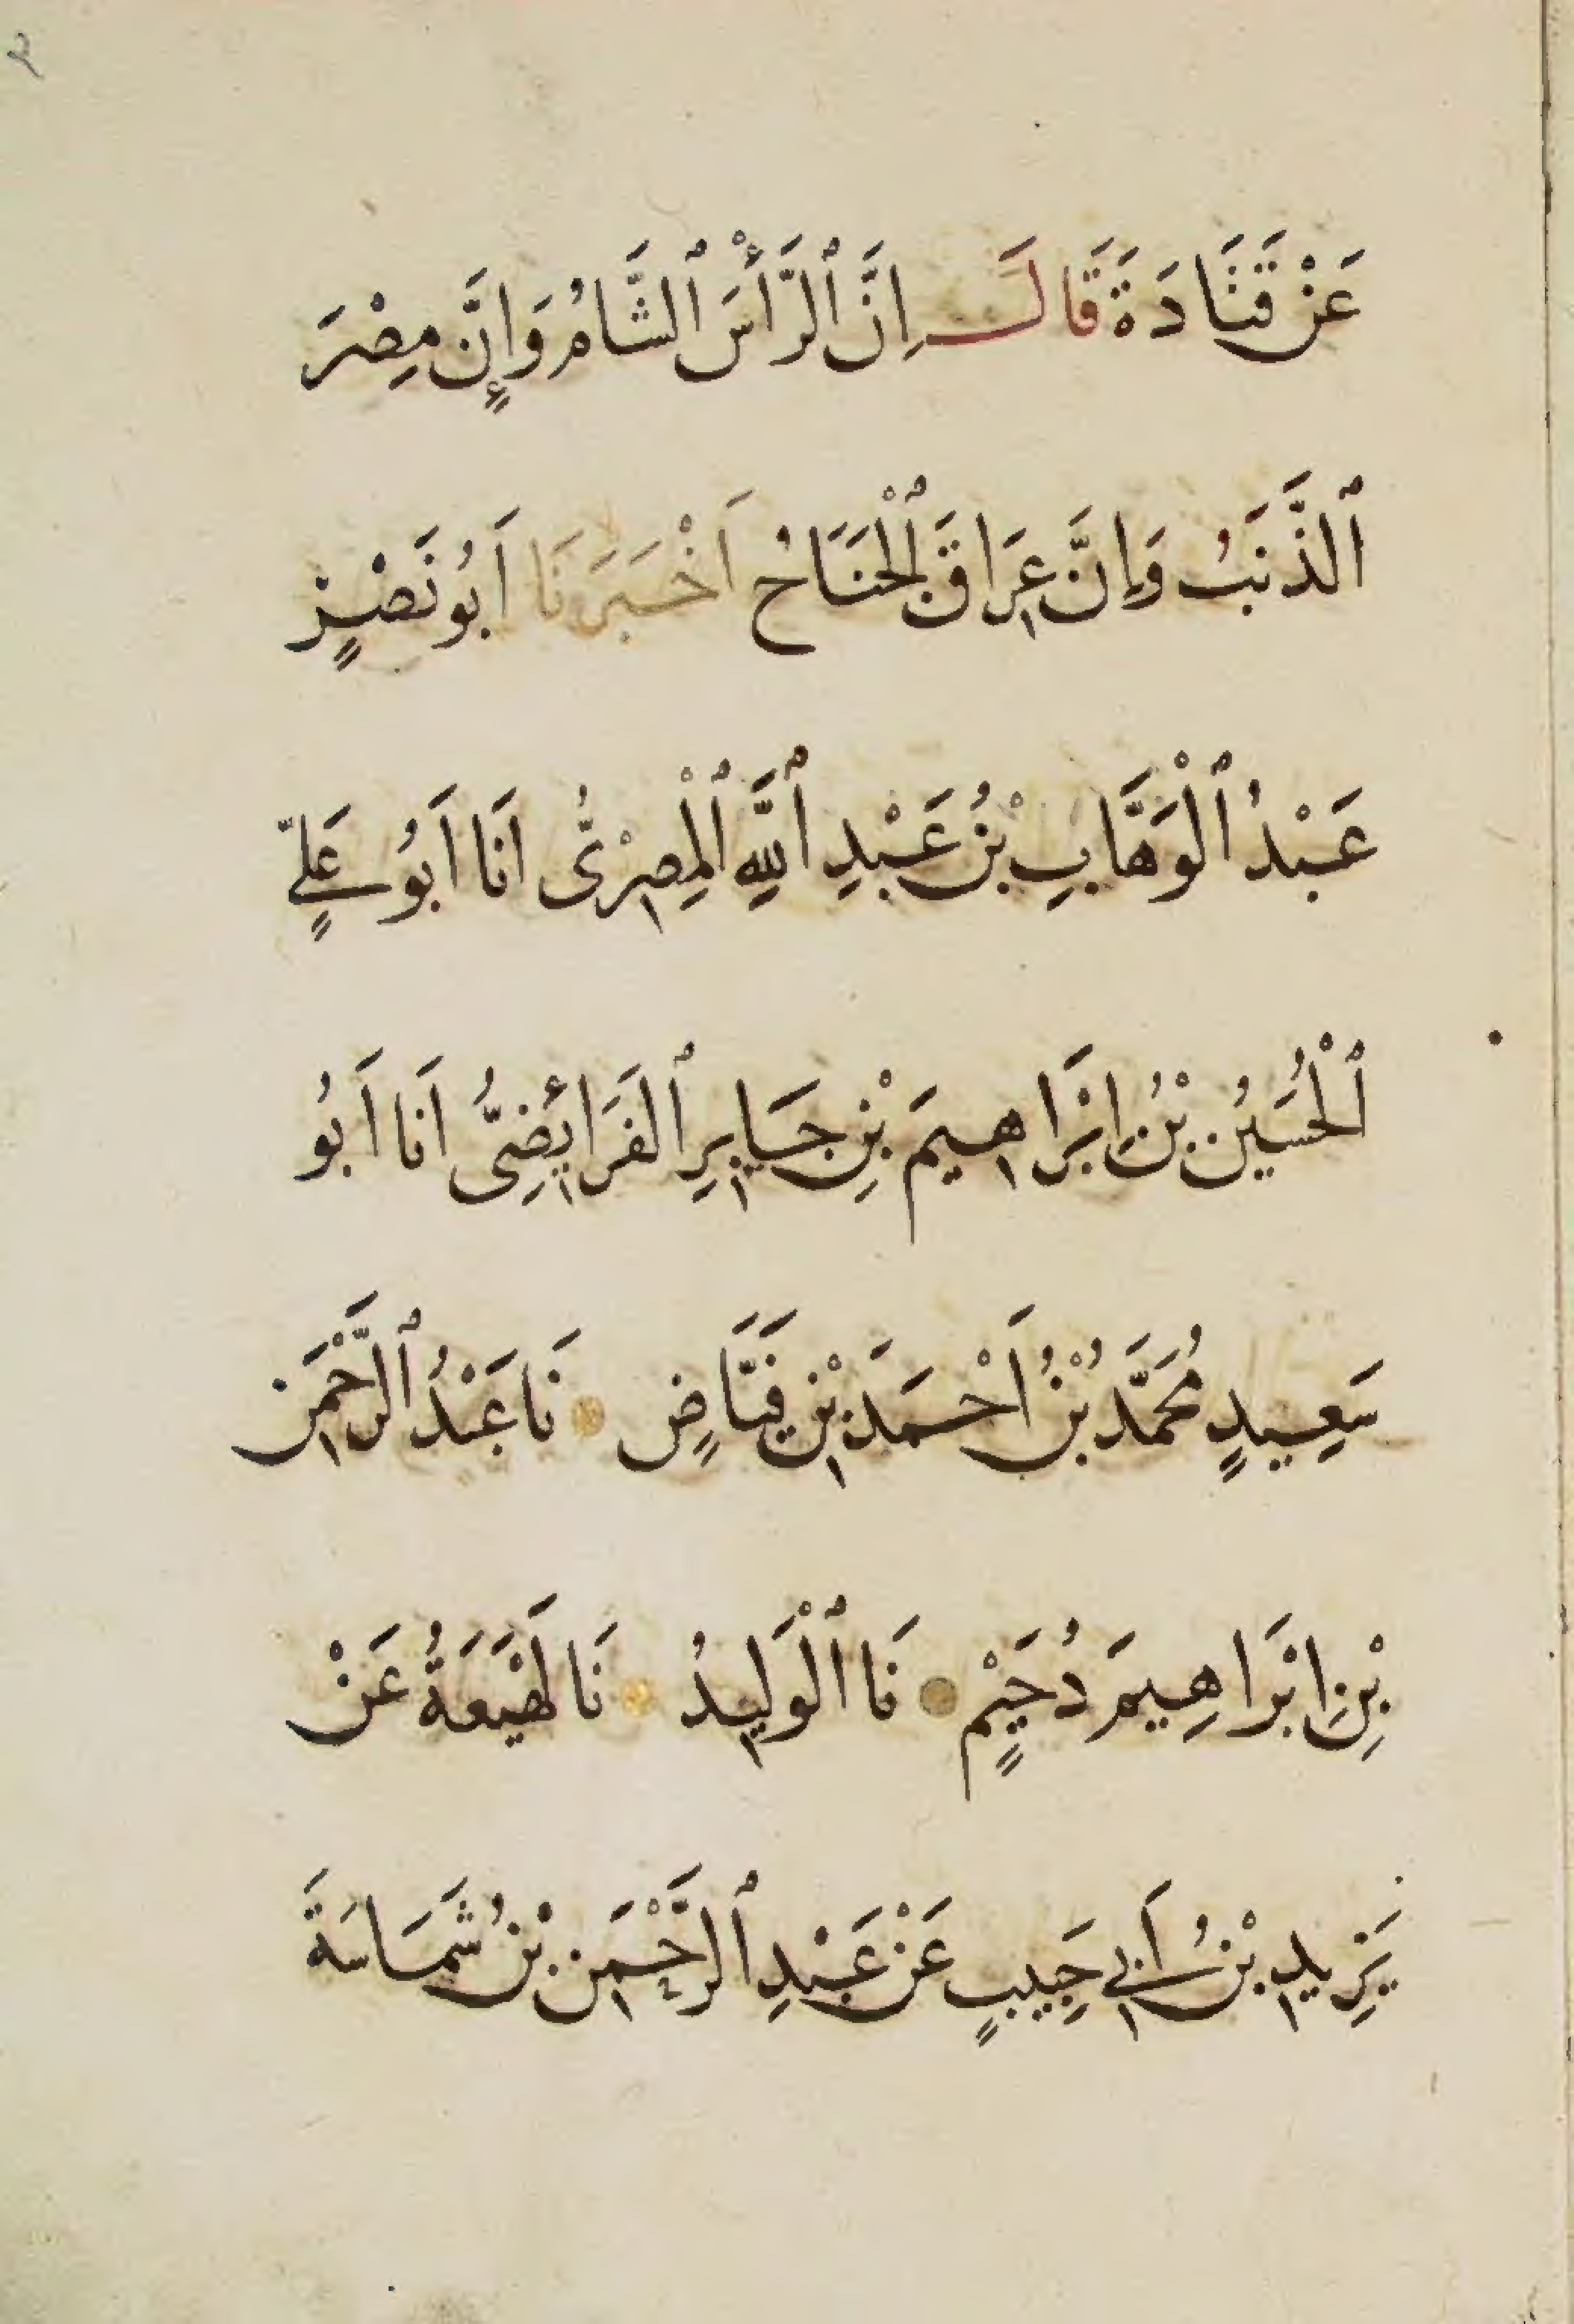 ٢
عَنْ قَتَادَةَ قَالَ اِنَّ ٱلرَّأْسَ ٱلشَّامُ وَإِنَّ مِصْرَ
ٱلذَّنَبُ وَإِنَّ عِرَاقَ ٱلْجَنَاحُ اَخْبَرَنَا اَبُو نَصْرٍ
عَبْدُ ٱلْوَهَّابِ بْنُ عَبْدِ ٱللَّهِ ٱلْمِصْرِىُّ اَنَا اَبُو عَلِيٍّ
ٱلْحُسَيْنُ بْنُ اِبْرَاهِيمَ بْنِ جَابِرِ ٱلفَرَائِضِىُّ اَنَا اَبُو
سَعِيدٍ مُحَمَّدُ بْنُ اَحْمَدَ بْنِ فَيَّاضٍ نَا عَبْدُ ٱلرَّحْمَنِ
بْنِ اِبْرَاهِيمَ دُحَيْمٍ نَا ٱلْوَلِيدُ نَا لَهْيَعَةُ عَنْ
يَزِيدِ بْنُ اَبِي حَبِيبٍ عَنْ عَبْدِ ٱلرَّحْمَنِ بْنُ شَمَاسَةَ